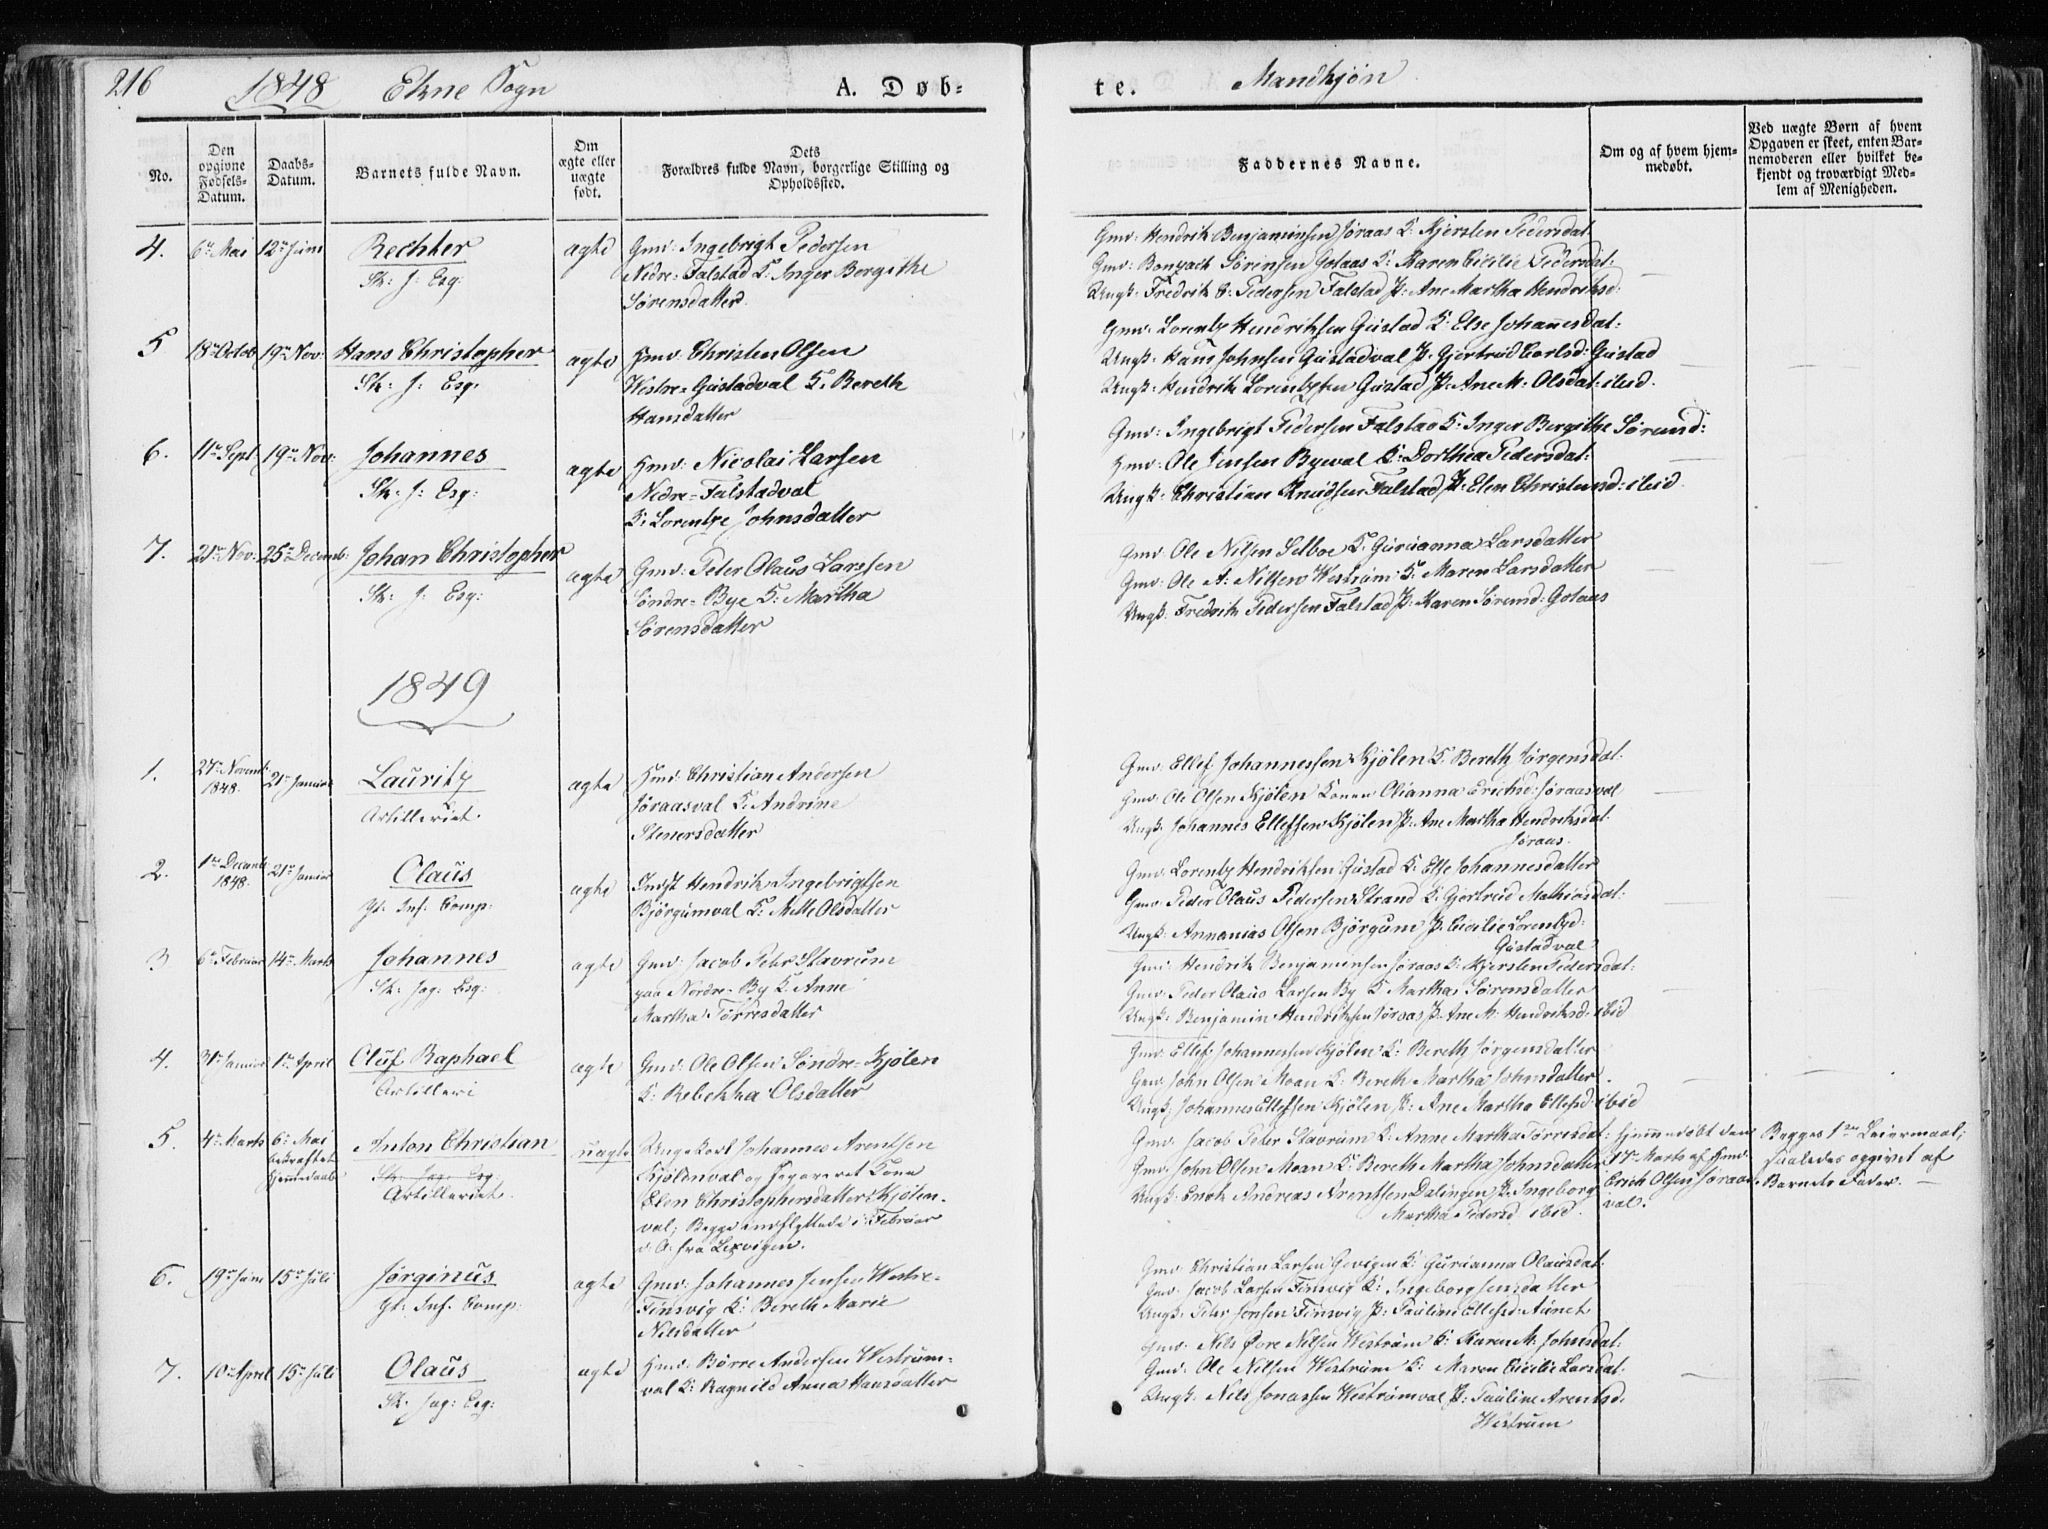 216
1848 Ekne Sogn
A. Døb-
te.
Mandkjøn
No.
Den opgivne Fødsels-Datum.
Daabs-Datum.
Barnets fulde Navn.
Om ægte eller uægte født.
Dets Forældres fulde Navn, borgerlige Stilling og Opholdssted.
Faddernes Navne.
Om og af hvem hjem-medøbt.
Ved uægte Børn af hvem Opgaven er skeet, enten Bar-nemoderen eller hvilket be-kjendt og troværdigt Med-lem af Menigheden.
4. 6te Mai 12te Juni Rechter ægte Gmd: Ingebrigt Pedersen
Sk: J: Esq:
Nedre-Falstad K. Inger Bergithe
Sørensdatter.
Gmd: Hendrik Benjaminsen Joraas K: Kjersten Pedersdat:
Gmd: Sørensen Golaas K: Karen Cicilie Pedersdt:
Ungk: Fredrik Pedersen Falstad P: Ane Martha Hendriksd:
5 18de Octob 19de Nov: Hans Christopher ægte Hmd: Christen Olsen
Sk: J: Esq:
Westre-Gustadval K. Bereth
Hansdatter
Gmd: Lorentz Hendriksen Gustad K: Else Johannesdat:
Ungk: Hans Johnsen Gustadval P: Gjertrud Carlsd: Gustad
Ungk: Hendrik Lorentzsen Gustad P: Ane M: Olsdat: ibid.
6. 11te Sept 19de Nov: Johannes ægte Hmd: Nicolai Larsen
Sk: J: Esq:
Nedre-Falstadval
K: Lorentze Johnsdatter
Gmd: Ingebrigt Pedersen Falstad K: Inger Bergithe Sørensd:
Hmd: Ole Jensen Byeval K: Dorthea Pedersdat:
Ungk: Christian Knudsen Falstad P: Elen Christensd: ibid.
7. 21de Nov: 25de Decemb: Johan Christopher ægte Gmd: Peter Olaus Larssen
Sk: J: Esq:
Søndre-Bye K: Martha
Sørensdatter
Gmd: Ole Nilsen Selboe K: Gurianna Larsdatter
Gmd: Ole A: Nilsen Westrum K: Maren Larsdatter
Ungk: Fredrik Pedersen Falstad P: Karen Sørensd: Golaas
1849
1. 27de Novemb: 1848. 21de Januar Lauritz ægte Hmd: Christian Andersen
Artilleriet.
Joraasval K: Andrine
Stenersdatter
Gmd: Ellef Johannessen Kjølen K: Bereth Jørgensdat:
Gmd: Ole Olsen Kjølen Konen Olianna Erichsd: Joraasval
Ungk: Johannes Ellefsen Kjølen P: Ane Martha Hendriksdat:
Joraas.
2. 1ste Decemb: 1848. 21de Januar Olaus ægte Indst Hendrik Ingebrigtsen
Yt: Inf: Comp:
Bjørgumval K: Mette Olsdatter
Gmd: Lorentz Hendriksen Gustad K: Else Johannesdatter
Gmd: Peder Olaus Pedersen Strand K: Gjertrud Mathiasdat:
Ungk: Annanias Olsen Bjørgum P: Cicilie Lorentzd:
Gustadval
3 6te Februar 14de Marts Johannes ægte Gmd: Jacob Peter Stavrum
Sk: Jag: Esq:
paa Nordre-By K: Anne
Martha Tørresdatter
Gmd: Hendrik Benjaminsen Joraas K: Kjersten Pedersdat:
Gmd: Peder Olaus Larsen By K: Martha Sørensdatter
Ungk: Benjamin Hendriksen Joraas P: Ane M: Hendriksd: ibid
4. 31te Januar 1ste April Oluf Raphael ægte Gmd: Ole Olsen Søndre-Kjølen
Artilleri
K: Rebekka Olsdatter
Gmd: Ellef Johannessen Kjølen K: Bereth Jørgensdatter
Gmd: John Olsen Moan K: Bereth Martha Johnsdatter.
Ungk: Johannes Ellefsen Kjølen P: Ane Martha Ellefsd: ibid
5. 4de Marts 6te Mai bekræftet Hjemmedaab Anton Christian uægte Ungekarl Johannes Arentsen
Sk: Jag: Esq:
Artilleriet.
Kjølenval og Kona
Elen Christophersdatter Kjølen-
val; Begge indflyttede i Februar
d. A. fra Lexvigen.
Gmd: Jacob Peter Stavrum K: Anne Martha Tørresdat:
Gmd: John Olsen Moan K: Bereth Martha Johnsdatter
Ungk: Enok Andreas Arentsen Dalingen P: Ingeborg
Martha Pedersd ibid.
Hjemmedøbt den
17de Marts af Gmd:
Erich Olsen Joraas-
val.
Begges 1ste Leiermaal;
saaledes opgivet af
Barnets Fader.
6. 19de Juni 15de Juli Jørginus ægte Gmd: Johannes Jensen Westre-
Yt: Inf: Comp:
Finsvig K: Bereth Marie
Nilsdatter
Gmd: Christian Larsen Gevigen K: Gurianna Olausdat:
Gmd: Jacob Larsen Finsvig K: Ingeborg Jensdatter
Ungk: Peter Jensen Finsvig P: Pauline Ellefsd Aunet
7. 10de April 15de Juli Olaus ægte Hmd: Børre Andersen Westrum-
Sk: Jag: Esq:
val K: Ragnild Anna Hansdatter
Gmd: Nils Øvre Nilsen Westrum K: Karen M: Johnsdat:
Gmd: Ole Nilsen Westrum K: Maren Cicilie Larsdat:
Ungk: Nils Jonassen Westrumval P: Pauline Arentsd:
Westrum